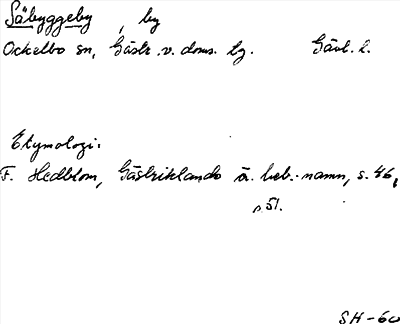 Säbyggeby, by
Ockelbo sn, Gästr. v. doms. tg. Gävl. l.
Etymologi:
F. Hedblom, Gästriklands ä. beb.-namn, s. 46,
s 51.
SH-60